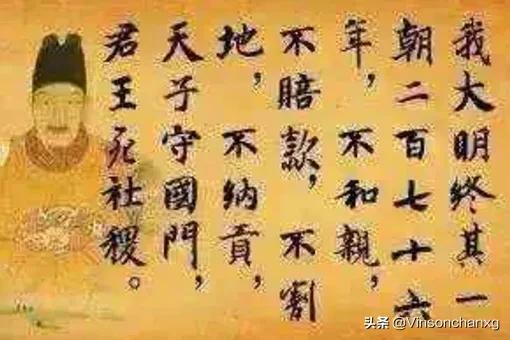 我大明终其一
朝二百七十六
年，不和親，
不賠款，不割
地，不納貢，
天子守國門，
君王死社稷。
头条 @Vinsonchanxg